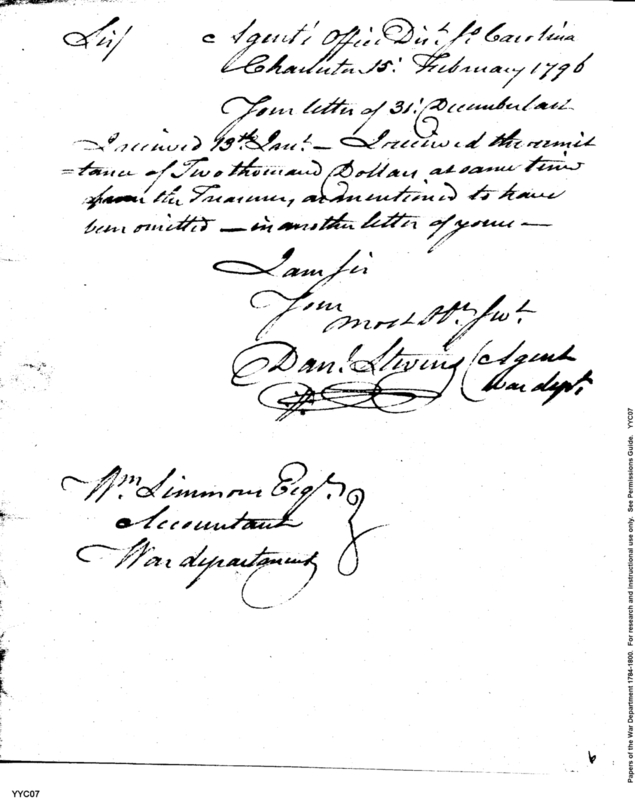 Sir/ Agent's Office Dist. So. Carolina
Charleston 15t. February 1796
Your letter of 31t. December last
I received 13th. Jany. — I received the remit
=tance of Two thousand Dollars at same time
from the Treasurer, as mentioned to have
been omitted — in another letter of yours —
I am Sir
Your
most Obt. Svt.
Danl. Stevens Agent
War dept.
Wm. Simmons Esqr.
Accountant
War department
6
Papers of the War Department 1784-1800. For research and instructional use only. See Permissions Guide. YYC07
YYC07